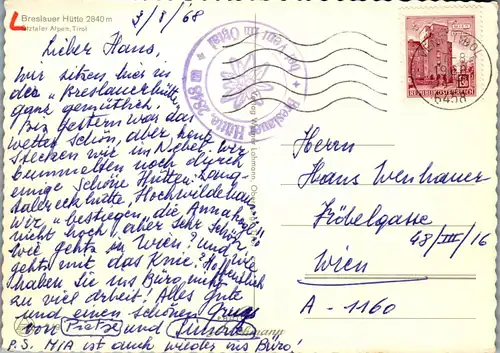 Breslauer Hütte 2840 m
Ötztaler Alpen, Tirol
3/8/68
Lieber Hans,
wir sitzen hier in
der "Breslauerhütte"
ganz gemütlich.
Bis gestern war das
Wetter schön, aber, heute
stecken wir im Nebel. Wir
bummelten noch durch
einige schöne Hütten: Lang-
talereckhütte Hochwildehaus
Wir "bestiegen" die
nicht hoch aber sehr schön
Wie gehts in Wien? und wie
gehts mit das Knie? Hoffentlich
haben Sie ins Büro nicht
zu viel Arbeit! Alles gute
und einen schönen Gruss
von Pietse und
P.S. M/A ist auch wieder ins Büro!
Breslauer Hütte 2848 m
TIROL
6458
REPUBLIK ÖSTERREICH
Herrn
Hans Wenhauer
Fröbelgasse
48/III/16
Wien
A - 1160